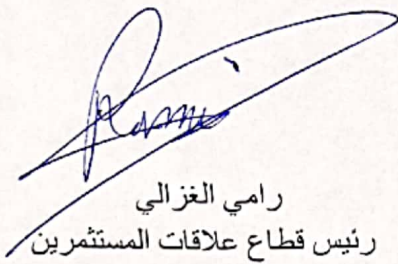 رامي الغزالي
رئيس قطاع علاقات المستثمرين